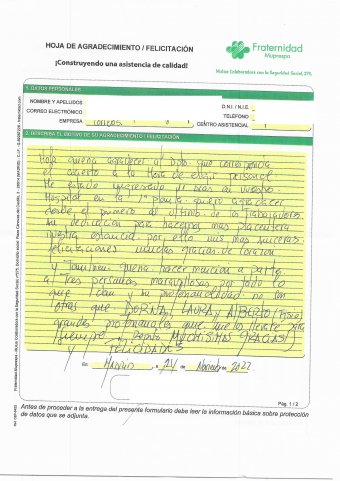 HOJA DE AGRADECIMIENTO / FELICITACIÓN
¡Construyendo una asistencia de calidad!
Fraternidad
Muprespa
Mutua Colaboradora con la Seguridad Social, 275
1. DATOS PERSONALES
NOMBRE Y APELLIDOS
D.N.I. / N.I.E.
CORREO ELECTRÓNICO
TELÉFONO
EMPRESA correos
CENTRO ASISTENCIAL
2. DESCRIBA EL MOTIVO DE SU AGRADECIMIENTO / FELICITACIÓN
Hola quería agradecer al Dpto que corresponda
el acierto a la Hora de elegir personal
He estado ingresado días en vuestro
Hospital en la planta quiero agradecer
desde el primero al último de los trabajadores
su dedicación para hacernos mas placentera
nuestra estancia por ello mis mas sinceras
felicitaciones muchas gracias de corazón
y también quería hacer mención a parte
a Tres personas maravillosas por todo lo
que dan y su profesionalidad no son
otras que BORNA, LAURA y ALBERTO (Fisio)
grandes profesionales que me los llevaré para
siempre MUCHÍSIMAS GRACIAS
y FELICIDADES
En MADRID, a 24 de Noviembre 2022
Pág. 1 / 2
Antes de proceder a la entrega del presente formulario debe leer la información básica sobre protección
de datos que se adjunta.